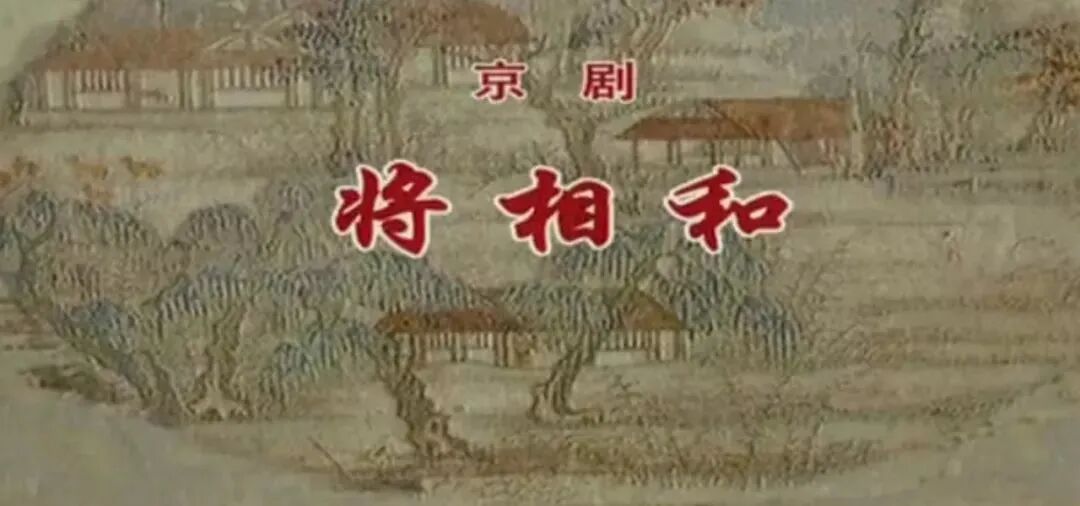 京剧
将相和